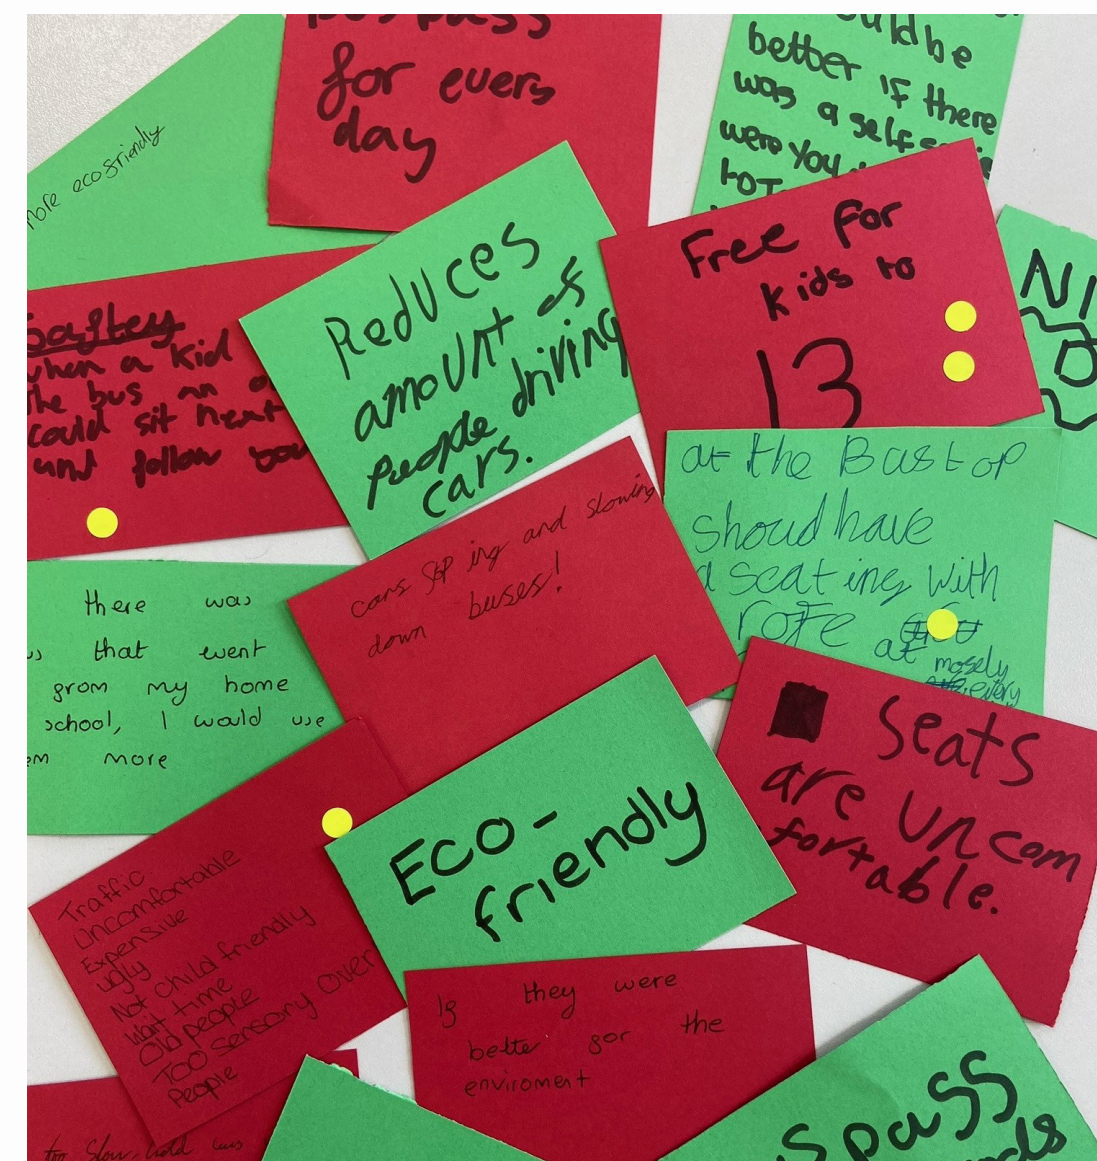 more ecofriendly
bus pass
for every
day
ould be
better if there
was a self
were you
Saftey
when a kid
the bus an
could sit next
and follow you
Reduces
amount of
people driving
cars.
Free for
kids to
13
NI
there was
that went
from my home
school, I would use
more
cars stoping and slowing
down buses!
at the Bustop
shoud have
a seating with
rofe
at mosely
every
Seats
are uncom
fortable.
Traffic
Uncomfortable
Expensive
ugly
Not child friendly
Wait time
Old people
Too sensory over
People
Eco-
friendly
If they were
bette for the
enviroment
too slow
spass